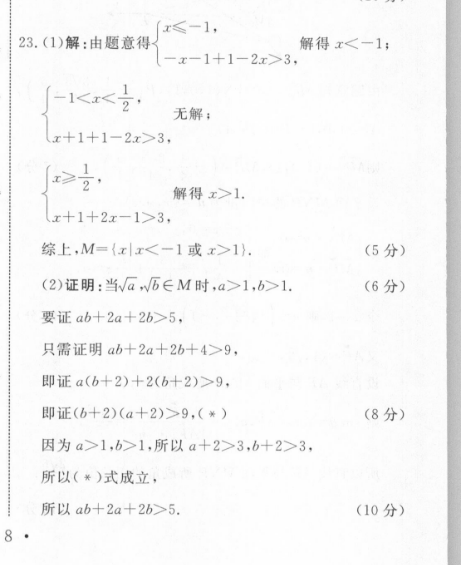 23.(1)解:由题意得{x≤-1, -x-1+1-2x>3, 解得 x<-1;
{-1<x<1/2, x+1+1-2x>3, 无解;
{x≥1/2, x+1+2x-1>3, 解得 x>1.
综上,M={x|x<-1 或 x>1}. (5 分)
(2)证明:当√a,√b∈M 时,a>1,b>1. (6 分)
要证 ab+2a+2b>5,
只需证明 ab+2a+2b+4>9,
即证 a(b+2)+2(b+2)>9,
即证(b+2)(a+2)>9,(*) (8 分)
因为 a>1,b>1,所以 a+2>3,b+2>3,
所以(*)式成立,
所以 ab+2a+2b>5. (10 分)
8 ·